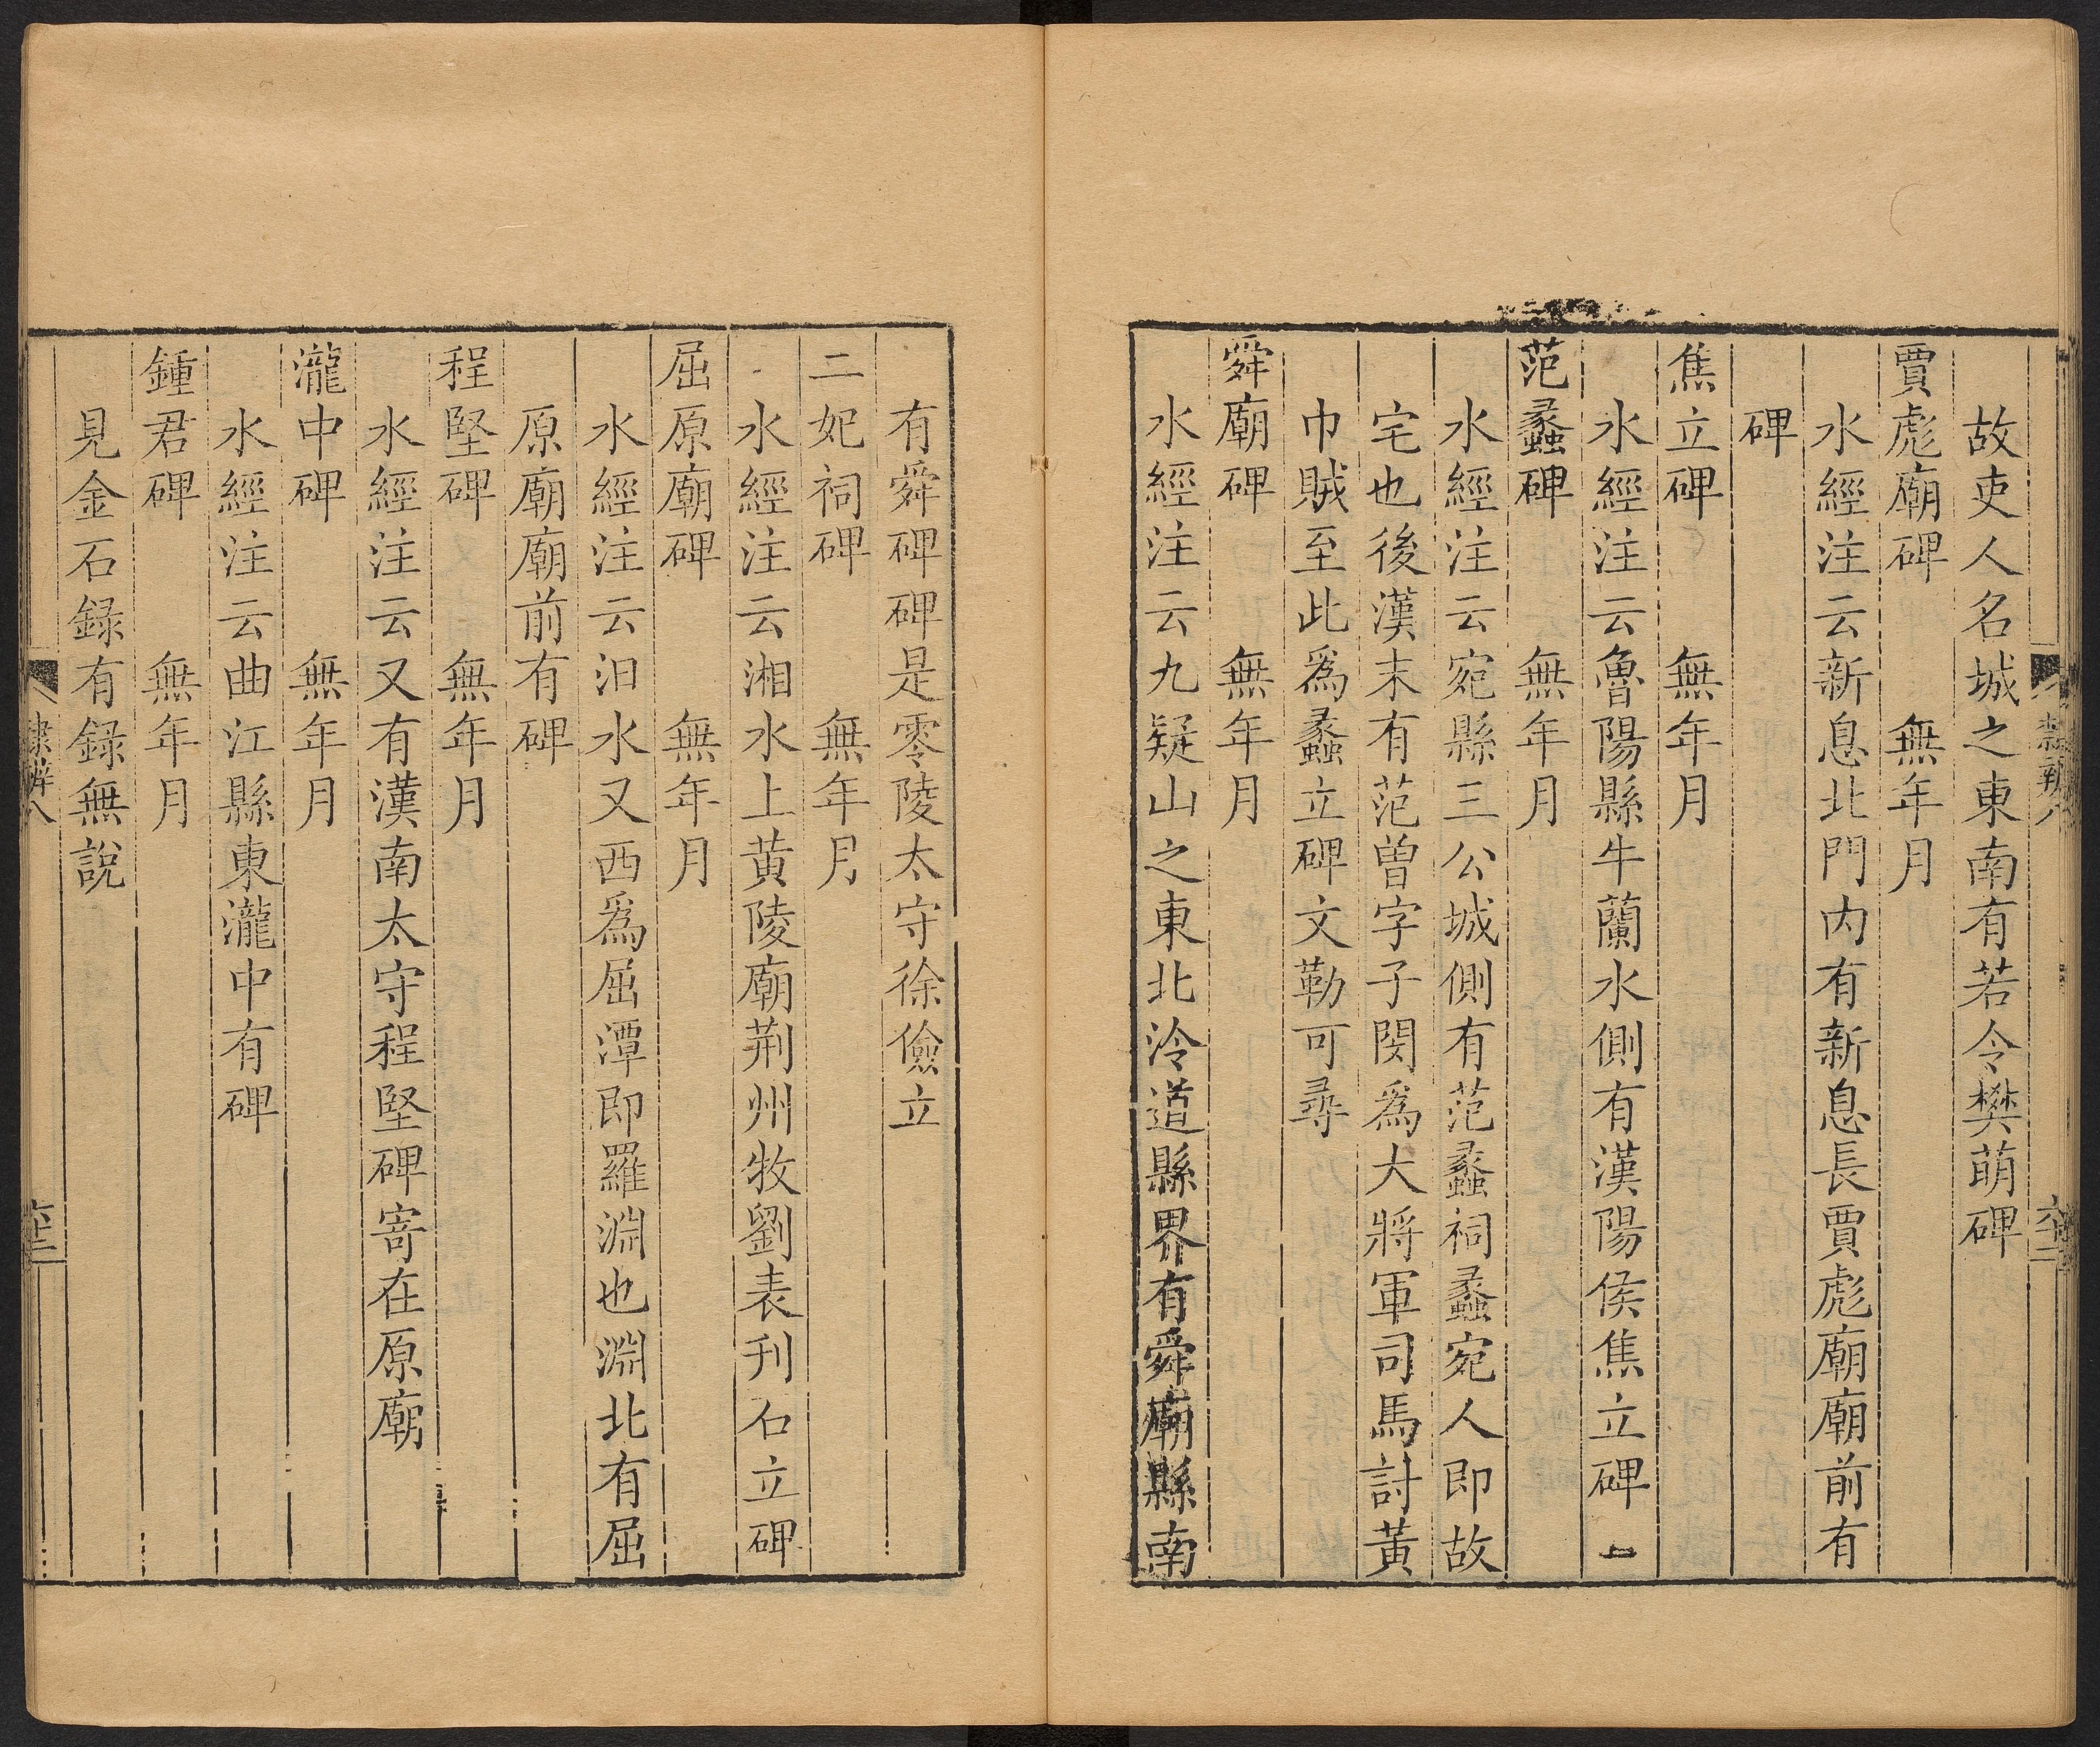 故吏人名城之東南有若令樊萌碑
賈彪廟碑　無年月
水經注云新息北門內有新息長賈彪廟廟前有
碑
焦立碑　無年月
水經注云魯陽縣牛蘭水側有漢陽侯焦立碑一
范蠡碑　無年月
水經注云宛縣三公城側有范蠡祠蠡宛人即故
宅也後漢末有范曾字子閔爲大將軍司馬討黃
巾賊至此爲蠡立碑文勒可尋
舜廟碑　無年月
水經注云九疑山之東北泠道縣界有舜廟縣南
有舜碑碑是零陵太守徐儉立
二妃祠碑　無年月
水經注云湘水上黃陵廟荆州牧劉表刊石立碑
屈原廟碑　無年月
水經注云汨水又西爲屈潭即羅淵也淵北有屈
原廟廟前有碑
程堅碑　無年月
水經注云又有漢南太守程堅碑寄在原廟
瀧中碑　無年月
水經注云曲江縣東瀧中有碑
鍾君碑　無年月
見金石録有録無說
隸辨八